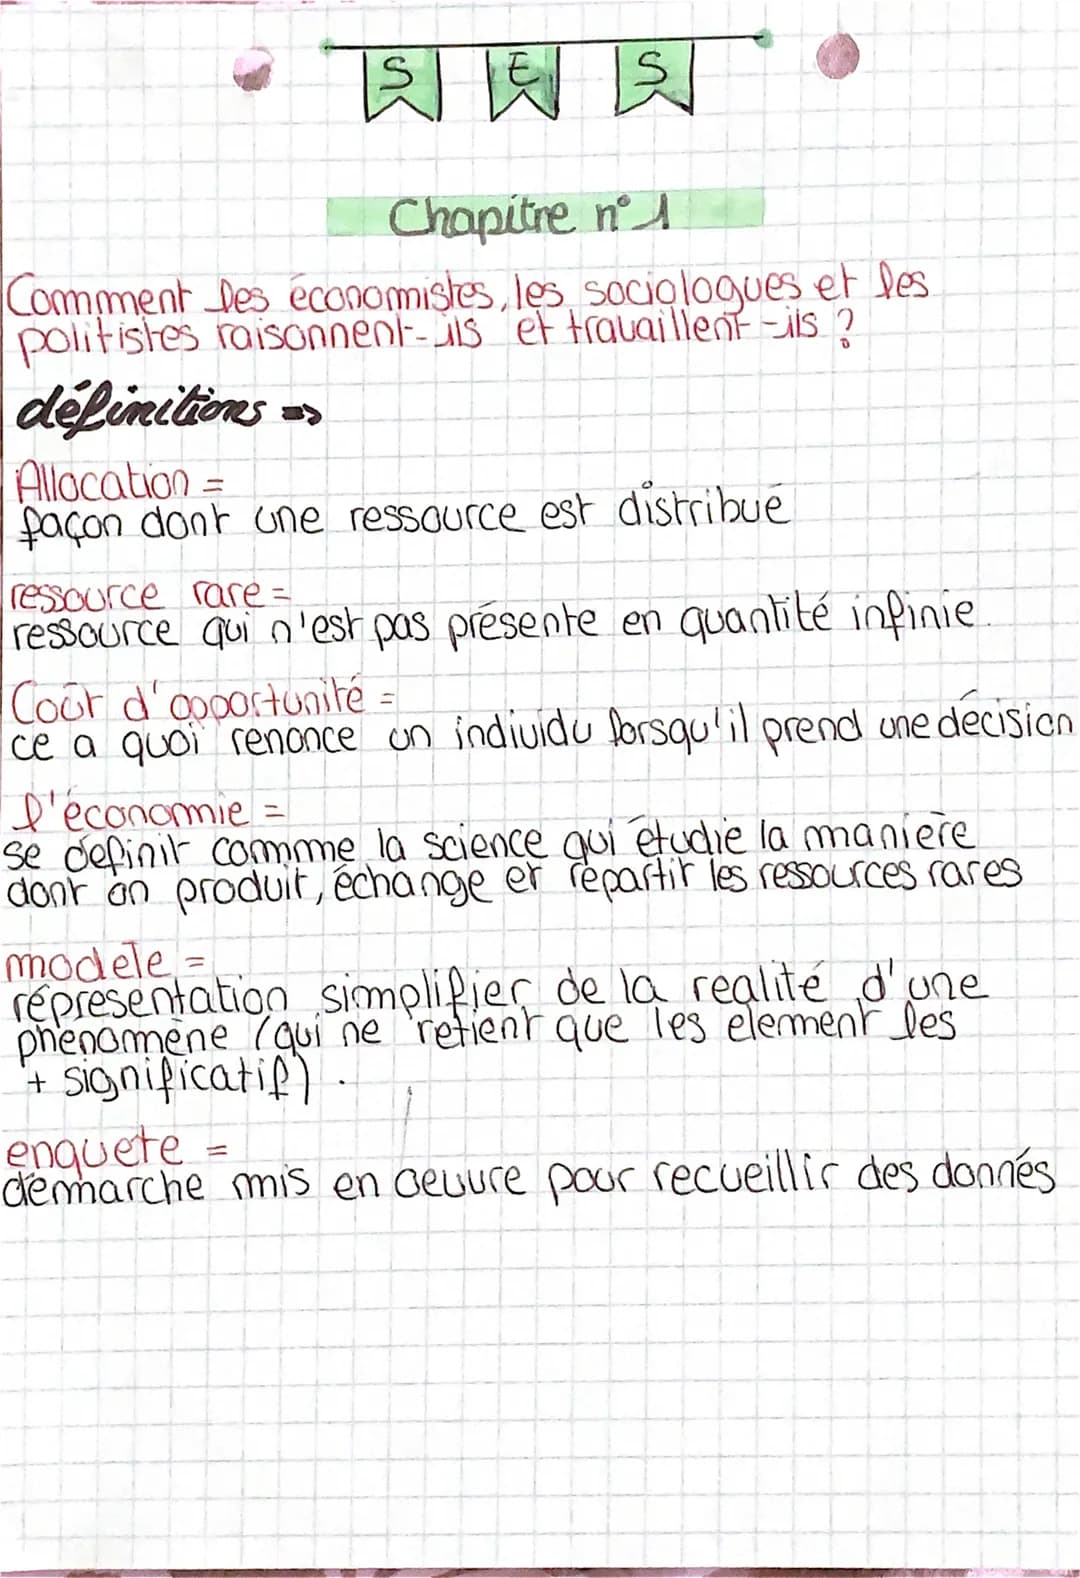 S E S
Chapitre n° 1
Comment les économistes, les sociologues et les
politistes raisonnent-ils et travaillent-ils ?
définitions =>
Allocation =
façon dont une ressource est distribué
ressource rare =
ressource qui n'est pas présente en quantité infinie.
Coût d'opportunité =
ce a quoi renonce un individu lorsqu'il prend une décision
l'économie =
se définit comme la science qui étudie la manière
dont on produit, échange et répartir les ressources rares
modèle =
réprésentation simplifier de la realité d'une
phénomène (qui ne retient que les element les
+ significatif).
enquete =
démarche mis en oeuvre pour recueillir des donnés